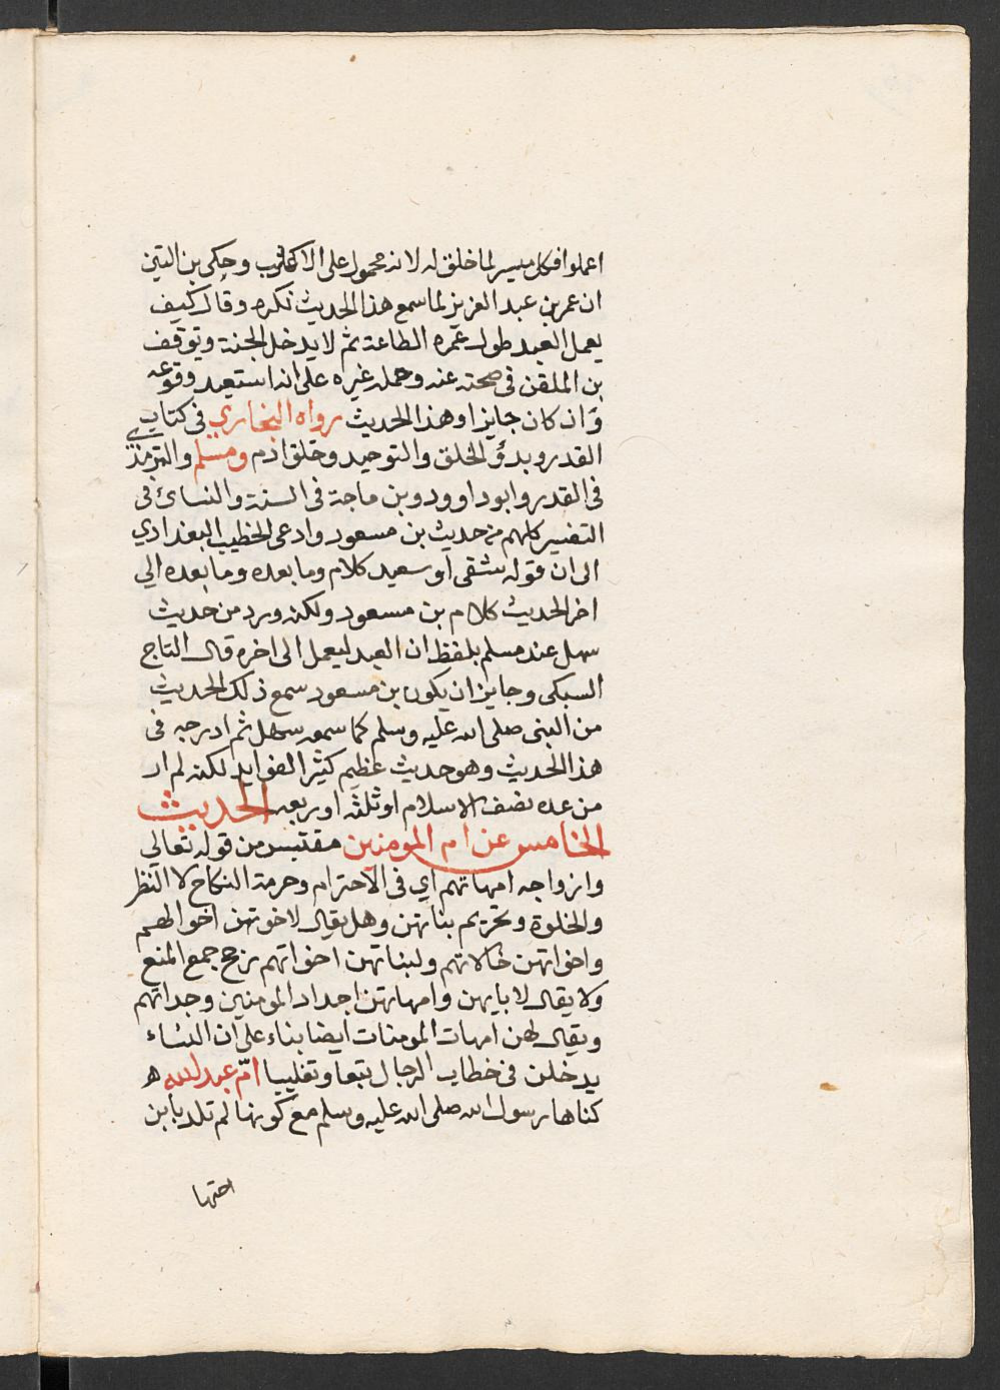 اعملوا فكل ميسر لما خلق له لانه محمول على الاكثر وحكى بن التين
ان عمر بن عبد العزيز لما سمع هذا الحديث نكره وقال كيف
يعمل العبد طول عمره الطاعة ثم لا يدخل الجنة وتوقف
بن الملقن فى صحته عنه وحمله غيره على انه استبعد وقوعه
وان كان جايزا وهذا الحديث رواه البخاري فى كتاب
القدر وبدؤ الخلق والتوحيد وخلق ادم ومسلم والترمذي
فى القدر وابو داوود وبن ماجة فى السنة والنسائ فى
التفسير كلهم من حديث بن مسعود وادعى الخطيب البغدادي
الى ان قوله شقى او سعيد كلام وما بعده وما بعده الي
اخر الحديث كلام بن مسعود ولكن ورد من حديث
سهل عند مسلم بلفظ ان العبد ليعمل الى اخره قال التاج
السبكى وجايز ان يكون بن مسعود سمع ذلك الحديث
من النبى صلى الله عليه وسلم كما سمعه سهل ثم ادرجه فى
هذا الحديث وهو حديث عظيم كثير الفوايد لكن لم ار
من عده نصف الاسلام او ثلثه او ربعه الحديث
الخامس عن ام المومنين مقتبس من قوله تعالي
وازواجه امهاتهم اي فى الاحترام وحرمة النكاح لا النظر
والخلوة وتحريم بناتهن وهل يقال لاخوتهن اخوالهم
واخواتهن خالاتهم ولبناتهن اخواتهم رجح جمع المنع
ولا يقال لابايهن وامهاتهن اجداد المومنين وجداتهم
ويقال لهن امهات المومنات ايضا بناء على ان النساء
يدخلن فى خطاب الرجال تبعا وتغليبا امّ عبد الله
كناها رسول الله صلى الله عليه وسلم مع كونها لم تلد بابن
اختها